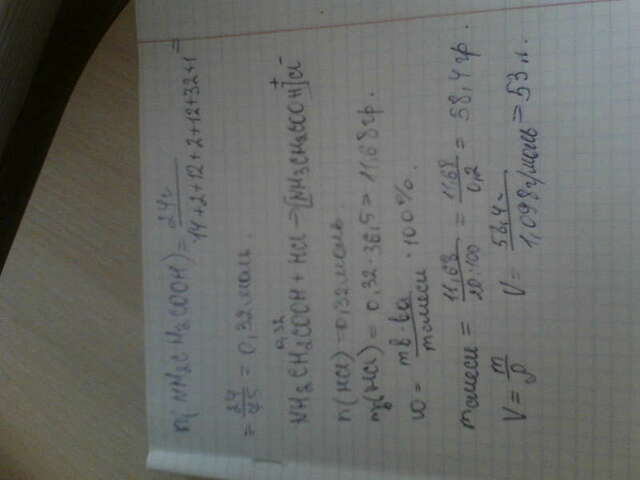 n(NH2CH2COOH) = 24г / 14+2+12+2+12+32+1 =
= 24/75 = 0,32 моль.
0,32
NH2CH2COOH + HCl → [NH3CH2COOH]⁺Cl⁻
n(HCl) = 0,32 моль
m(HCl) = 0,32·36,5 = 11,68 гр.
ω = mв-ва / mсмеси · 100%.
mсмеси = 11,68 / 20:100 = 11,68 / 0,2 = 58,4 гр.
V = m/ρ V = 58,4г / 1,098г/моль = 53 л.